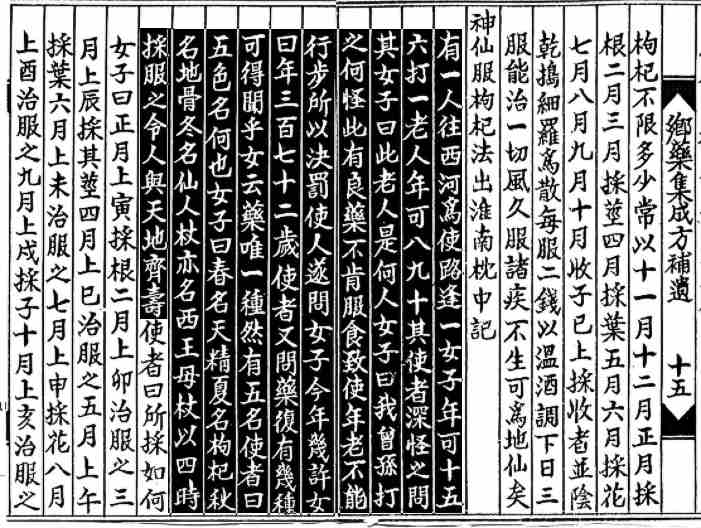 鄕藥集成方補遺 十五
枸杞不限多少常以十一月十二月正月採
根二月三月採莖四月採葉五月六月採花
七月八月九月十月收子已上採收者並陰
乾搗細羅爲散每服二錢以溫酒調下日三
服能治一切風久服諸疾不生可爲地仙矣
神仙服枸杞法出淮南枕中記
有一人往西河爲使路逢一女子年可十五
六打一老人年可八九十其使者深怪之問
其女子曰此老人是何人女子曰我曾孫打
之何怪此有良藥不肯服食致使年老不能
行步所以決罰使人遂問女子今年幾許女
曰年三百七十二歲使者又問藥復有幾種
可得聞乎女云藥唯一種然有五名使者曰
五色名何也女子曰春名天精夏名枸杞秋
名地骨冬名仙人杖亦名西王母杖以四時
採服之令人與天地齊壽使者曰所採如何
女子曰正月上寅採根二月上卯治服之三
月上辰採其莖四月上巳治服之五月上午
採葉六月上未治服之七月上申採花八月
上酉治服之九月上戌採子十月上亥治服之